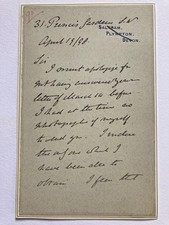 31 Princes Gardens S.W
SALTRAM,
PLYMPTON,
DEVON.
April 19/90
Sir
I must apologize for
not having answered your
letter of March 14 before
I had at the time no
photographs of myself
to send you. I enclose
the only one which I
have been able to
obtain I fear that